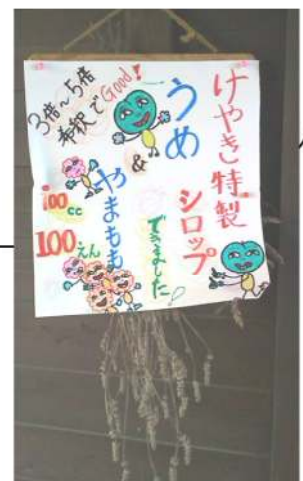 けやき特製
シロップ
うめ
&
やまもも
できました!
3倍~5倍
希釈でGood!
100cc
100えん